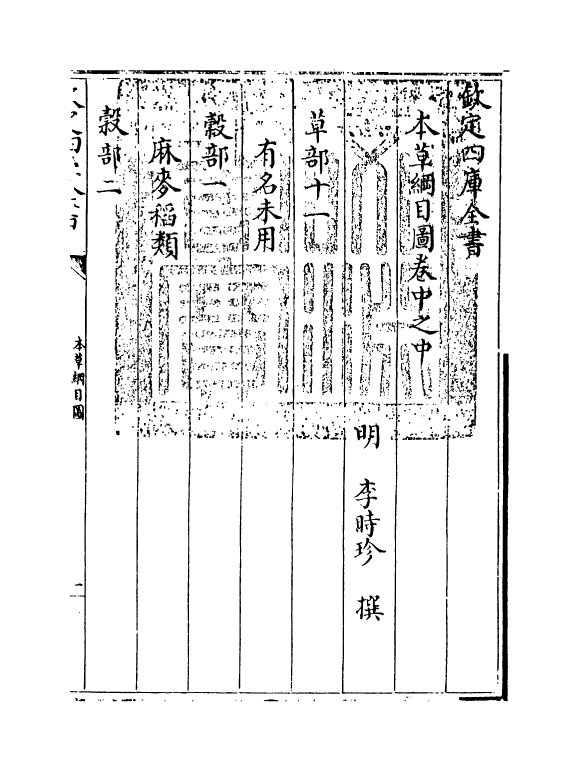 欽定四庫全書
本草綱目圖卷中之中
明 李時珍 撰
草部十一
有名未用
穀部一
麻麥稻類
穀部二
本草綱目圖